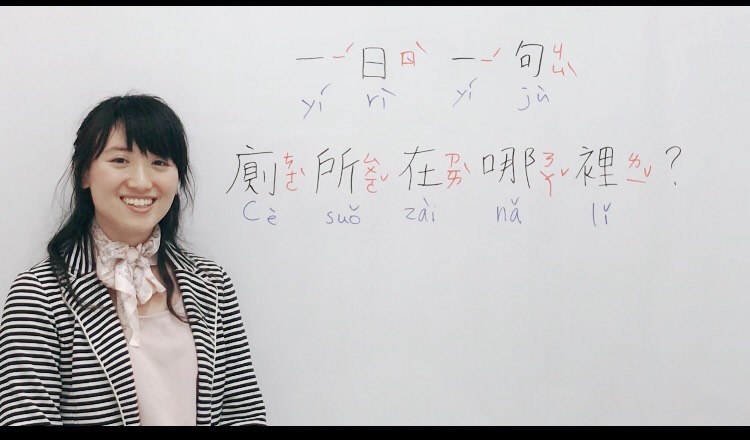 一ㄧˊ日ㄖˋ 一ㄧˊ句ㄐㄩˋ
yí rì yí jù
廁ㄘㄜˋ所ㄙㄨㄛˇ在ㄗㄞˋ哪ㄋㄚˇ裡ㄌㄧˇ?
Cè suǒ zài nǎ lǐ